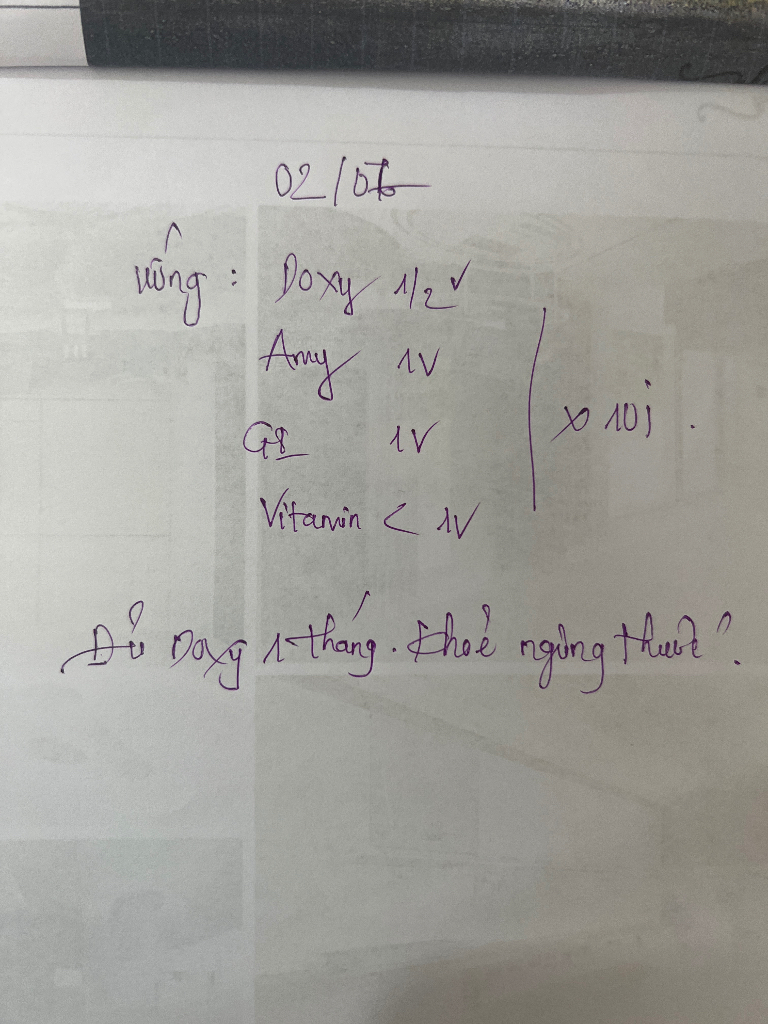 02/07
Uống : Doxy 1/2 v
Amy 1V
G8 1V
x 10j .
Vitamin C 1V
Đủ Doxy 1 tháng . Khoẻ ngừng thuốc .